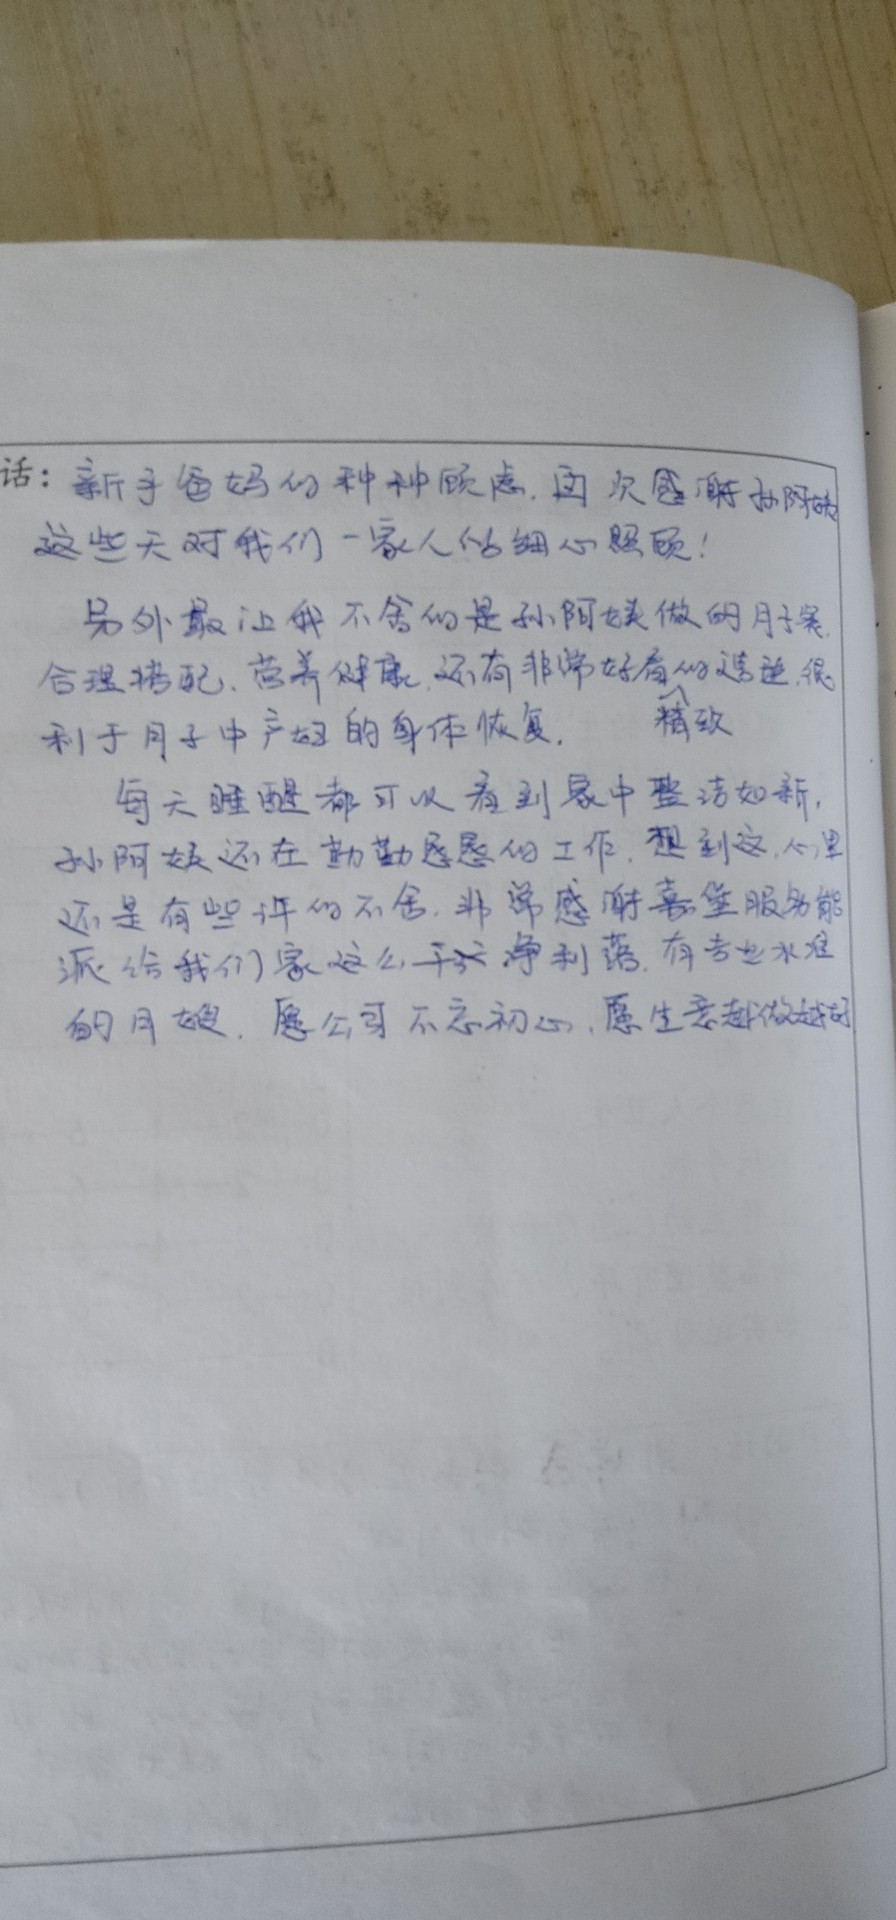 话：新手爸妈的种种顾虑，再次感谢孙阿姨
这些天对我们一家人的细心照顾！
另外最让我不舍的是孙阿姨做的月子餐，
合理搭配，营养健康，还有非常好看的造型，很
精致
利于月子中产妇的身体恢复。
每天睡醒都可以看到家中整洁如新，
孙阿姨还在勤勤恳恳的工作，想到这，心里
还是有些许的不舍，非常感谢嘉堡服务能
派给我们家这么干净利落，有专业水准
的月嫂，愿公司不忘初心，愿生意越做越好